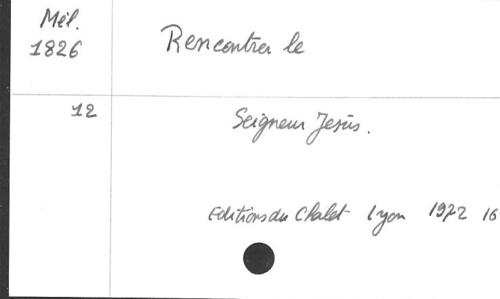 Mél.
1826
Rencontrer le
12
Seigneur Jesùs.
Editions du Chalet Lyon 1972 16